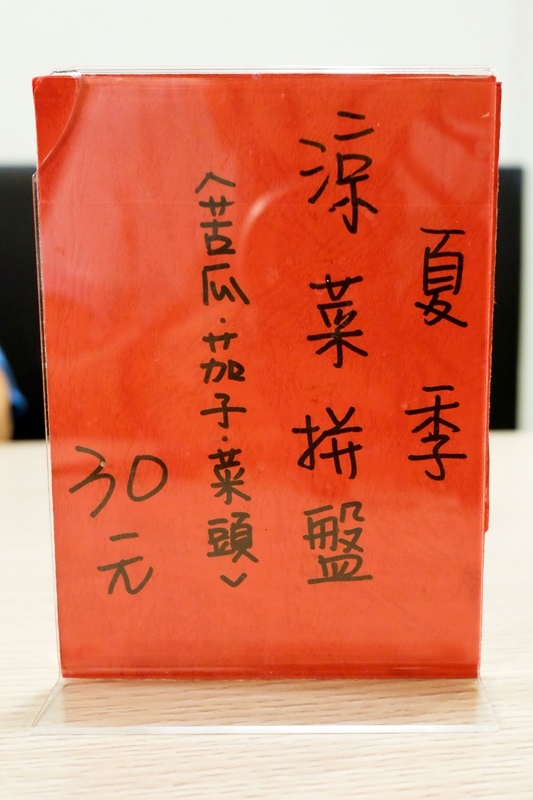 夏季
涼菜拼盤
(苦瓜·茄子·菜頭)
30元